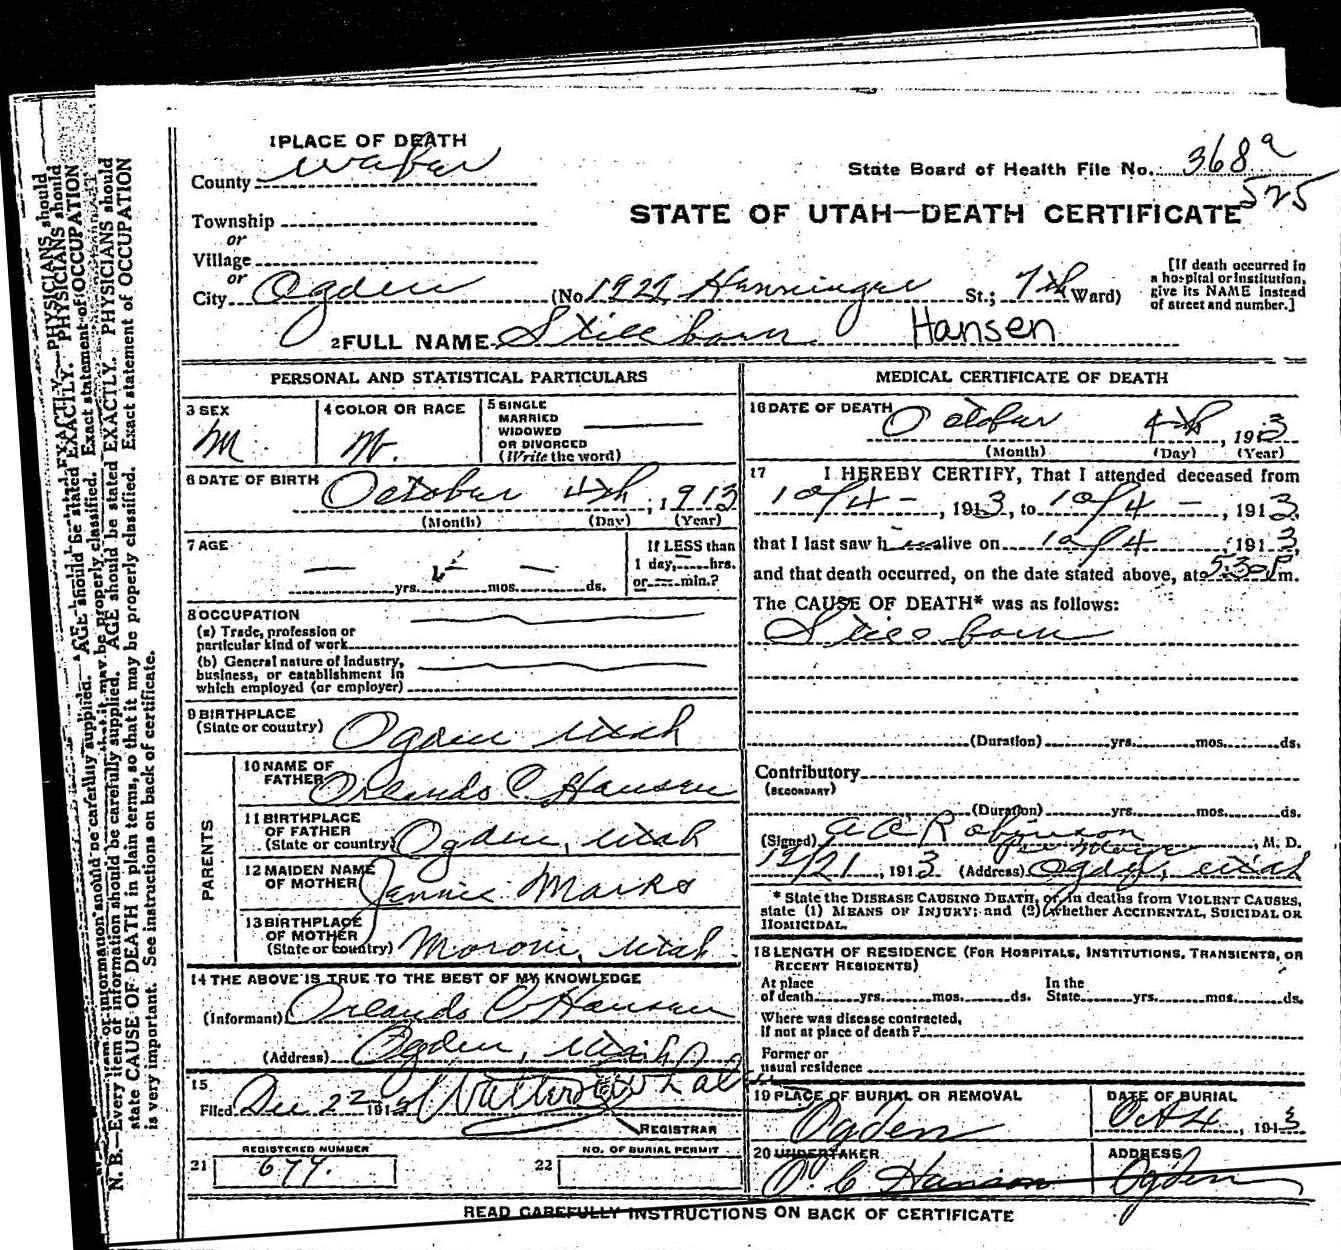 1 PLACE OF DEATH
County Weber
State Board of Health File No. 368a
525
STATE OF UTAH—DEATH CERTIFICATE
Township
or
Village
or
City Ogden (No 1922 St.; 7th Ward)
[If death occurred in a hospital or institution, give its NAME instead of street and number.]
2 FULL NAME Stillborn Hansen
PERSONAL AND STATISTICAL PARTICULARS
3 SEX
M
4 COLOR OR RACE
W.
5 SINGLE
MARRIED
WIDOWED
OR DIVORCED
(Write the word)
6 DATE OF BIRTH October 4th, 1913
(Month) (Day) (Year)
7 AGE
yrs. mos. ds.
If LESS than
1 day, hrs.
or min.?
8 OCCUPATION
(a) Trade, profession or
particular kind of work
(b) General nature of industry,
business, or establishment in
which employed (or employer)
9 BIRTHPLACE
(State or country) Ogden Utah
PARENTS
10 NAME OF
FATHER Orlando C. Hansen
11 BIRTHPLACE
OF FATHER
(State or country) Ogden, Utah
12 MAIDEN NAME
OF MOTHER Jennie Marks
13 BIRTHPLACE
OF MOTHER
(State or country) Moroni, Utah.
14 THE ABOVE IS TRUE TO THE BEST OF MY KNOWLEDGE
(Informant) Orlando C Hansen
(Address) Ogden, Utah
15
Filed Dec 22 1913 Walter
REGISTRAR
REGISTERED NUMBER
21 679.
NO. OF BURIAL PERMIT
22
MEDICAL CERTIFICATE OF DEATH
16 DATE OF DEATH October 4th, 1913
(Month) (Day) (Year)
17 I HEREBY CERTIFY, That I attended deceased from
10/4 - , 1913, to 10/4 - , 1913,
that I last saw h alive on 10/4 1913,
and that death occurred, on the date stated above, at 5:30 P m.
The CAUSE OF DEATH* was as follows:
Stillborn
(Duration) yrs. mos. ds.
Contributory
(SECONDARY)
(Duration) yrs. mos. ds.
(Signed) A A Robinson, M. D.
12/21, 1913 (Address) Ogden, Utah
* State the DISEASE CAUSING DEATH, or, in deaths from VIOLENT CAUSES,
state (1) MEANS OF INJURY; and (2) whether ACCIDENTAL, SUICIDAL OR
HOMICIDAL.
18 LENGTH OF RESIDENCE (FOR HOSPITALS, INSTITUTIONS, TRANSIENTS, OR
RECENT RESIDENTS)
At place
of death yrs. mos. ds.
In the
State yrs. mos. ds.
Where was disease contracted,
if not at place of death?
Former or
usual residence
19 PLACE OF BURIAL OR REMOVAL
Ogden
DATE OF BURIAL
Oct 4, 1913
20 UNDERTAKER
O. C Hansen
ADDRESS
Ogden
READ CAREFULLY INSTRUCTIONS ON BACK OF CERTIFICATE
N. B.—Every item of information should be carefully supplied. AGE should be stated EXACTLY. PHYSICIANS should
state CAUSE OF DEATH in plain terms, so that it may be properly classified. Exact statement of OCCUPATION
is very important. See instructions on back of certificate.